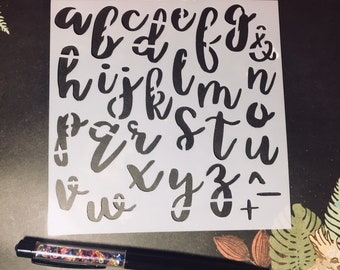 a b c d e f g &
h i j k l m n
p q r s t u o
v w x y z ^ - +